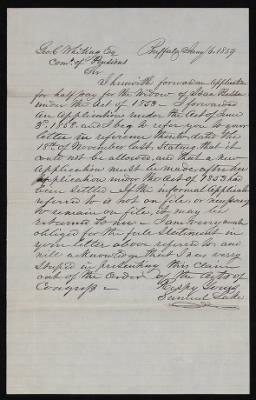 Geo. C. Whiting Esq Buffalo Jany 6. 1859
Com. of Pensions
Sir
I herewith forward an Application
for half pay for the Widow of Isaac
under the Act of 1853 - I forwarded
an Application under the Act of June
3d. 1858 - and I beg to refer you to your
letter in reference thereto, dated the
18th of November last. Stating that it
could not be allowed, and that a new
Application must be made after her
Application under the Act of 1853 has
been settled. If the informal Application
referred to is not on file, or necessary
to remain on file, it may be
returned to me - I am very much
obliged for the full Statement in
your letter above referred to, and
will acknowledge that I was very
stupid in presenting this claim
out of the Order of the Acts of
Congress -
Respy Yours
Samuel Lake